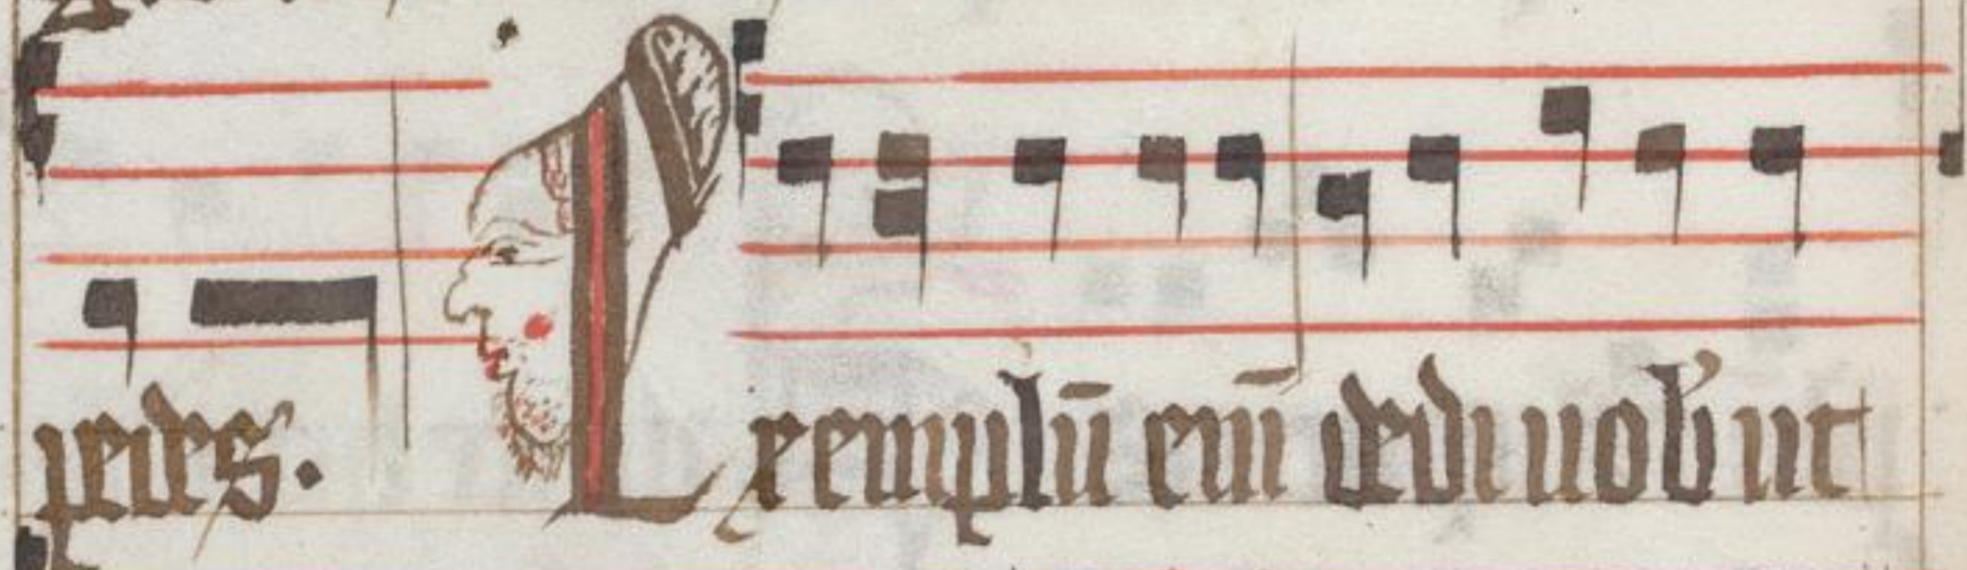 pedes. Exemplū em̄ dedi uob᷒ ut